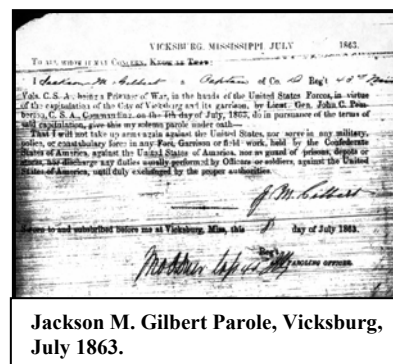 VICKSBURG, MISSISSIPPI, JULY 1863.
TO ALL WHOM IT MAY CONCERN, KNOW YE THAT:
I Jackson M. Gilbert a Captain of Co. Reg't 43rd Miss
Vols. C. S. A., being a Prisoner of War, in the hands of the United States Forces, in virtue
of the capitulation of the City of Vicksburg and its garrison, by Lieut. Gen. John C. Pem-
berton, C. S. A., Commanding, on the 4th day of July, 1863, do in pursuance of the terms of
said capitulation, give this my solemn parole under oath—
That I will not take up arms again against the United States, nor serve in any military,
police, or constabulary force in any Fort, Garrison or field work, held by the Confederate
States of America, against the United States of America, nor as guard of prisons, depots or
stores, nor discharge any duties usually performed by Officers or soldiers, against the United
States of America, until duly exchanged by the proper authorities.
J M Gilbert
Sworn to and subscribed before me at Vicksburg, Miss, this 8 day of July 1863.
Reg't
PAROLING OFFICER.
Jackson M. Gilbert Parole, Vicksburg,
July 1863.